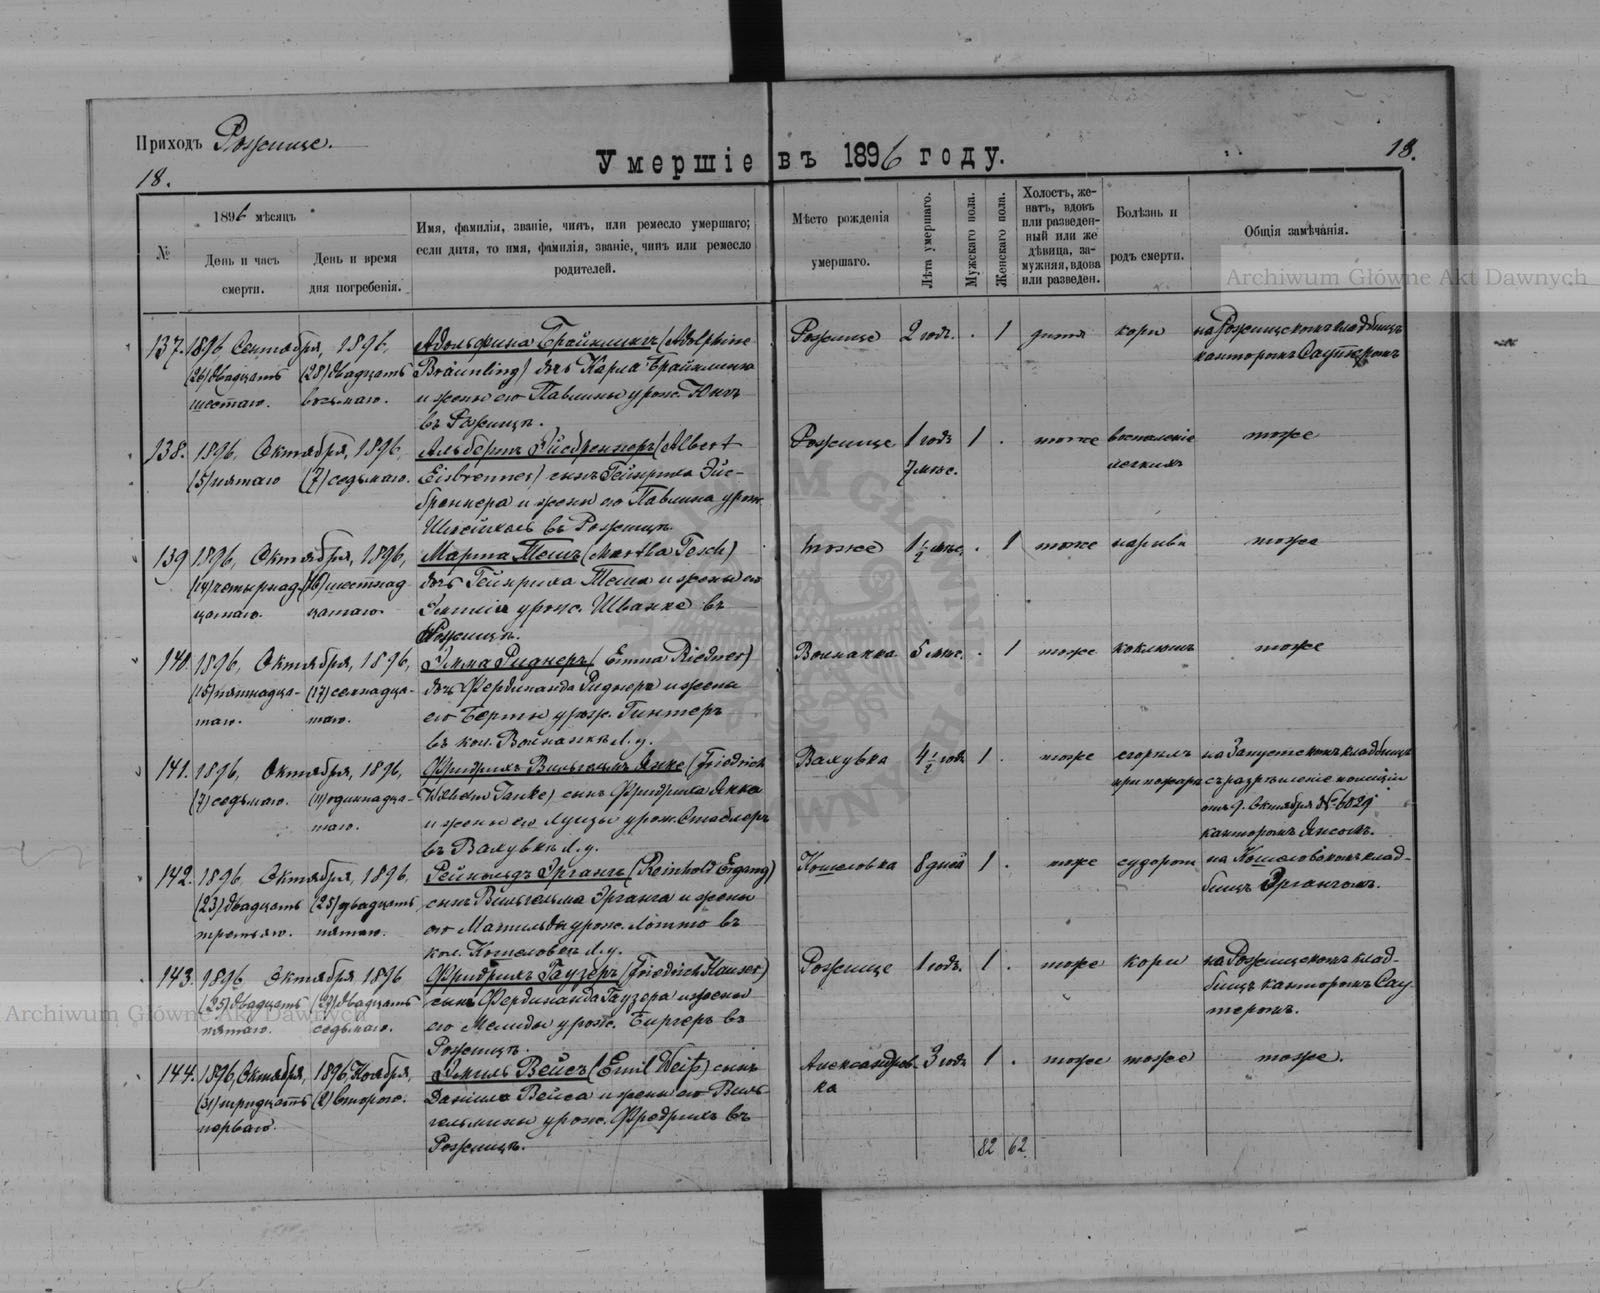 Приходъ Рожище.
Умершіе въ 1896 году.
18.
18.
№
1896 мѣсяцъ
День и часъ смерти.
День и время дня погребенія.
Имя, фамилія, званіе, чинъ, или ремесло умершаго;
если дитя, то имя, фамилія, званіе, чинъ или ремесло
родителей.
Мѣсто рожденія
умершаго.
Лѣта умершаго.
Мужскаго пола.
Женскаго пола.
Холостъ, же-
натъ, вдовъ
или разведен-
ный или же
дѣвица, за-
мужняя, вдова
или разведен.
Болѣзнь и
родъ смерти.
Общія замѣчанія.
Archiwum Główne Akt Dawnych
137. 1896 Сентября, 1896, Адольфина Брайнлингъ (Adolphine Рожище 2 года. . 1 дитя кори на Рожищскомъ кладбищѣ
(26) двадцать (28) двадцать Bräunling) дочь Карла Брайнлинга канторомъ Саутеромъ
шестаго. восьмаго. и жены его Павлины урож. Юнгъ
въ Рожищѣ.
138. 1896, Октября, 1896, Альбертъ Эйсбреннеръ (Albert Рожище 1 годъ 1 . тоже воспаленіе тоже
(5) пятаго (7) седьмаго. Eisbrenner) сынъ Гейнриха Эйс- 7 мѣс. легкихъ
бреннера и жены его Павлина урож.
въ Рожищѣ.
139 1896, Октября, 1896, Марта Тешъ (Martha Tesch) тоже 1 1/2 мѣс. . 1 тоже тоже
(14) четырнад- (16) шестнад- дочь Гейнриха Теша и жены его
цатаго. цатаго. Эмиліи урож. Шванке въ
Рожищѣ.
140. 1896, Октября, 1896, Эмма Риднеръ (Emma Riedner) Волнянка 5 мѣс. . 1 тоже коклюшъ тоже
(15) пятнадца- (17) семнадца- дочь Фердинанда Риднера и жены
таго. таго. его Берты урож. Гинтеръ
въ кол. Волнянкѣ Л. у.
141. 1896, Октября, 1896, Фридрихъ Вильгельмъ Янке (Friedrich Валувка 4 1/2 года 1 . тоже сгорѣлъ на кладбищѣ
(7) седьмаго. (11) одиннадца- Wilhelm Janke) сынъ Фридриха Янке при пожарѣ съ разрѣшеніе полиціи
таго. и жены его Луизы урож. Стаблеръ отъ 9. Октября №
въ Валувкѣ Л. у. канторомъ
142. 1896, Октября, 1896, Рейнольдъ Эргангъ (Reinhold Ergang) Кошеловка 8 дней 1 . тоже судороги на Кошеловскомъ клад-
(23) двадцать (25) двадцать сынъ Вильгельма Эрганга и жены бищѣ Эргангомъ.
третьяго. пятаго. его Матильды урож. Лотто въ
кол. Кошеловкѣ Л. у.
143. 1896 Октября, 1896 Фридрихъ Гаузеръ (Friedrich Hauser) Рожище 1 годъ. 1 . тоже кори на Рожищскомъ клад-
(25) двадцать (27) двадцать сынъ Фердинанда Гаузера и жены бищѣ канторомъ Сау-
пятаго. седьмаго. его Мелиды урож. Биргеръ въ теромъ.
Рожищѣ.
144. 1896, Октября, 1896, Ноября, Эмиль Вейсъ (Emil Weiß) сынъ Александров- 3 года 1 . тоже тоже тоже.
(31) тридцать (2) второго. Даніила Вейса и жены его Виль- ка
перваго. гельмины урож. Фредрихъ въ
Рожищѣ.
82 62.
Archiwum Główne Akt Dawnych